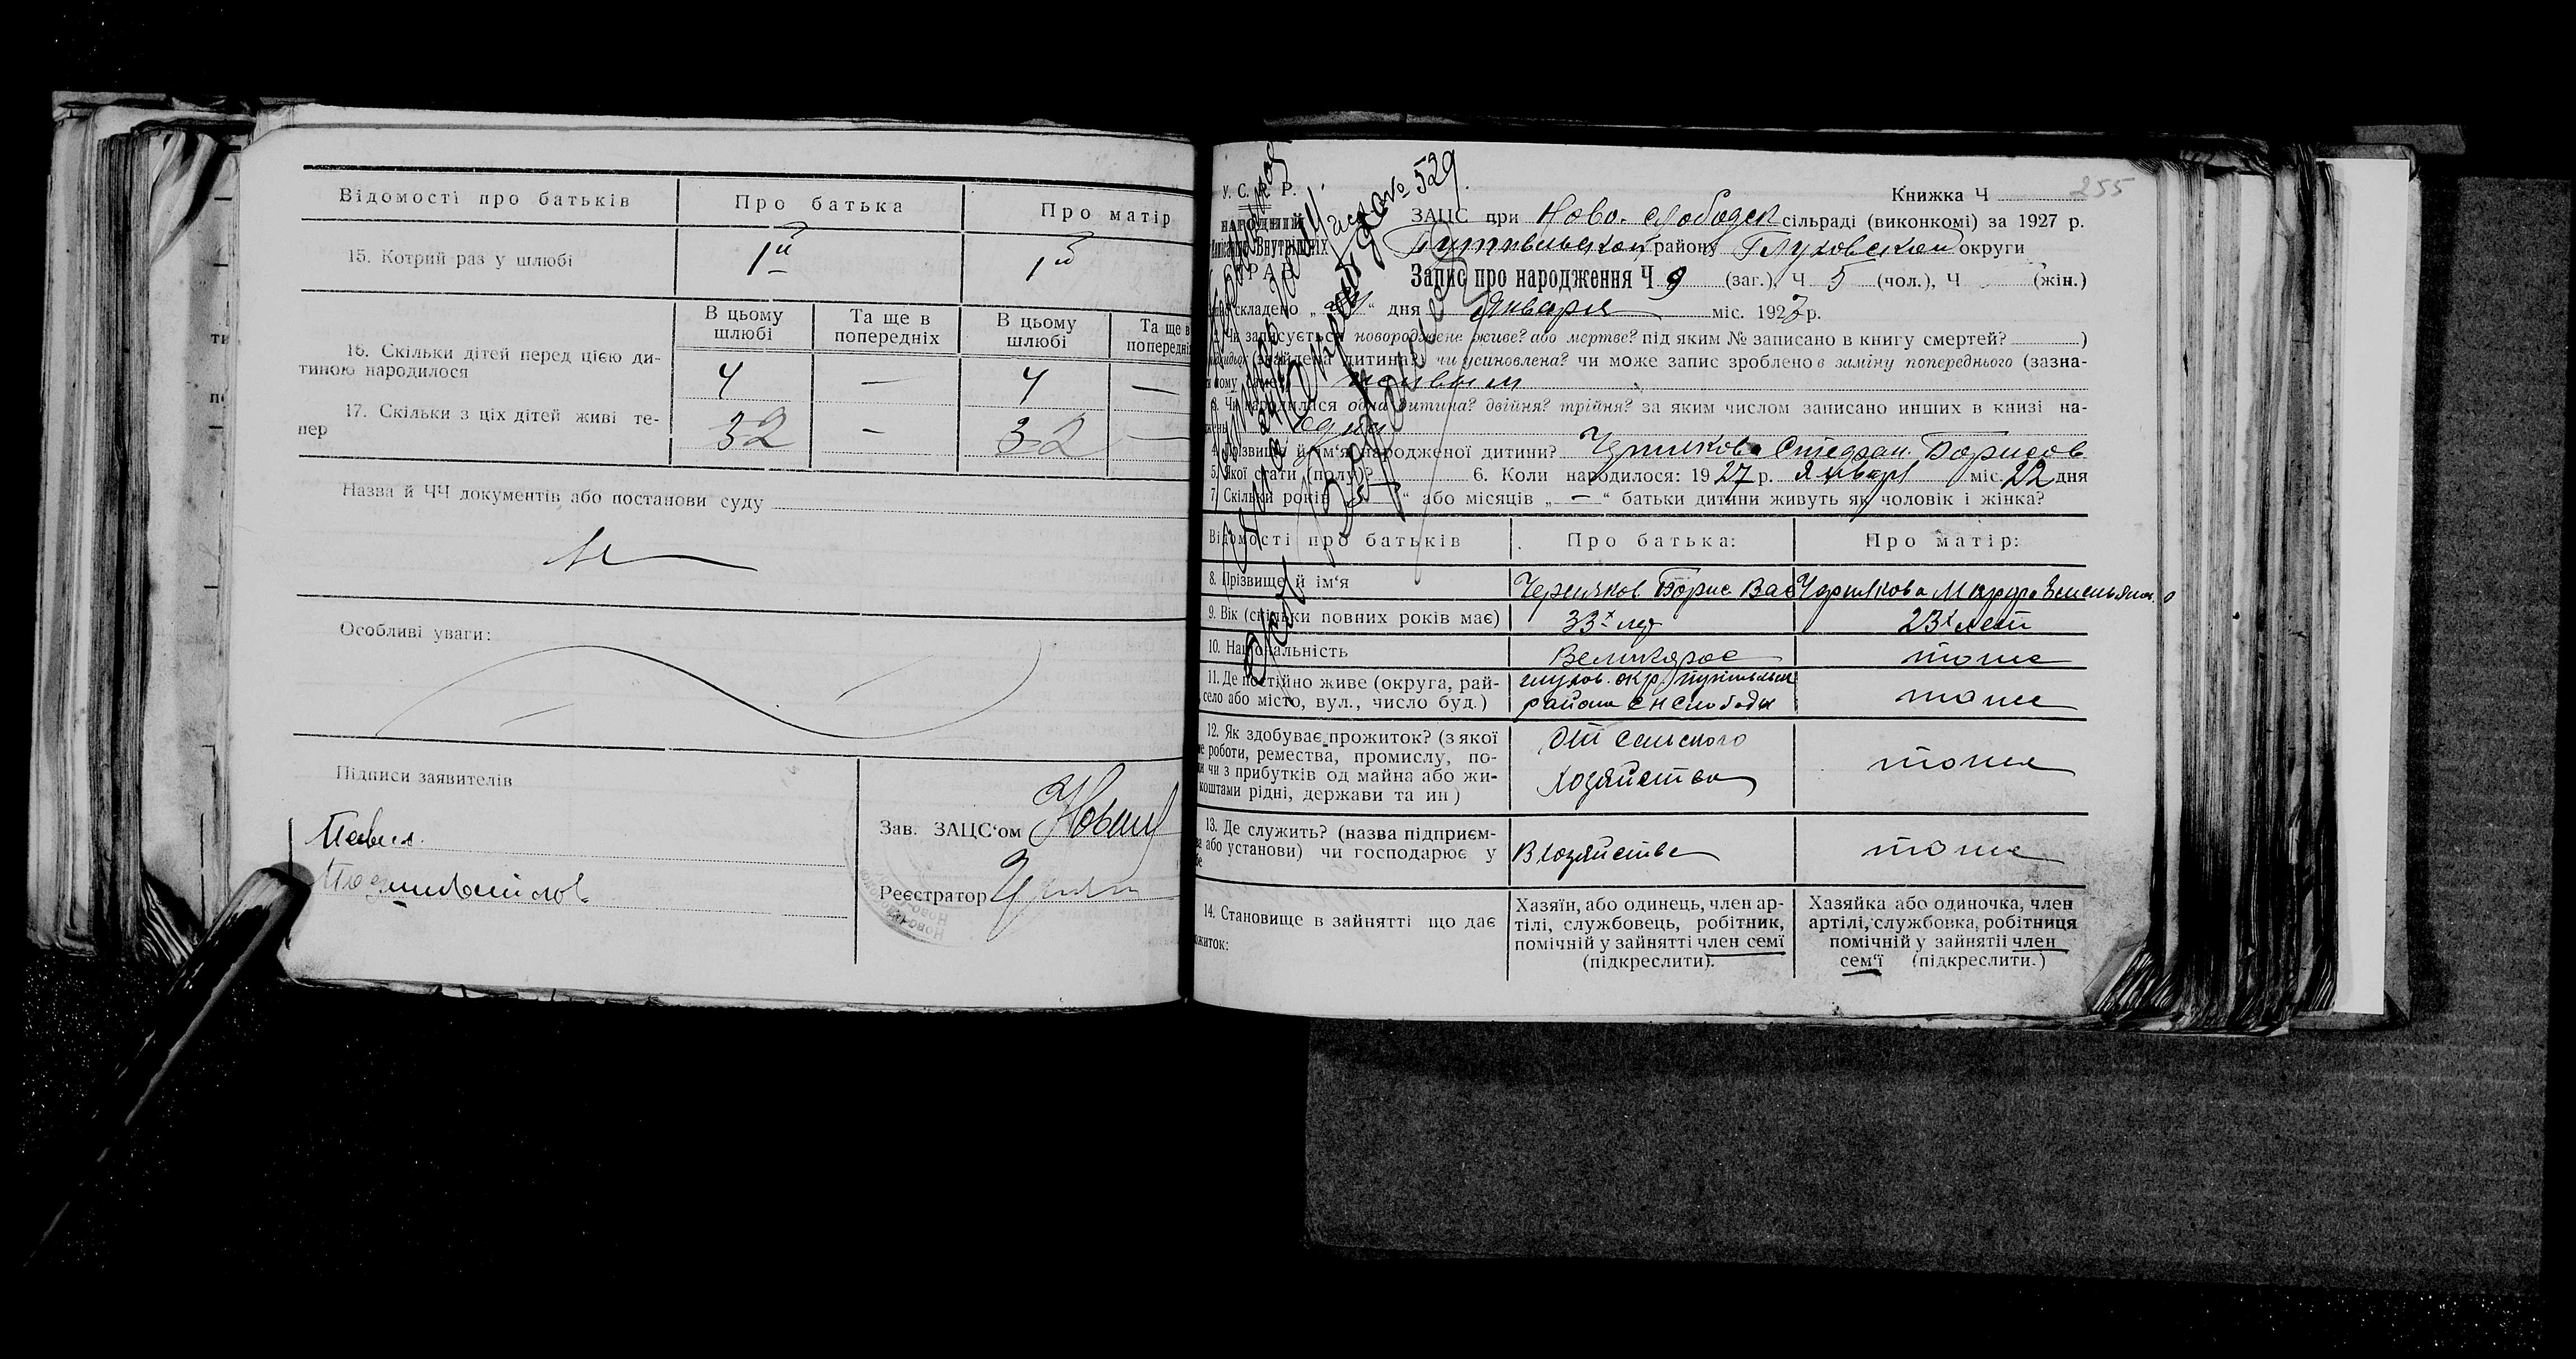 Відомості про батьків
Про батька
Про матір
15. Котрий раз у шлюбі
1й
1й
В цьому шлюбі
Та ще в попередніх
В цьому шлюбі
Та ще в
попередні
16. Скільки дітей перед цією ди-
тиною народилося
4
—
4
—
17. Скільки з ціх дітей живі те-
пер
32
—
32
—
Назва й ЧЧ документів або постанови суду
Особливі уваги:
Підписи заявителів
Зав. ЗАЦС'ом
Реєстратор
255
У. С. Р. Р.
Книжка Ч
№ 529
НАРОДНИЙ
ЗАЦС при Ново-Слободск сільраді (виконкомі) за 1927 р.
Внутрішніх
Путивльской району Глуховской округи
СПРАВ
Запис про народження Ч 9 (заг.), Ч 5 (чол.), Ч (жін.)
складено „ “ дня Января міс. 1927 р.
Чи записується новороджене живе? або мертве? під яким № записано в книгу смертей? )
(знайдена дитина?) чи усиновлена? чи може запис зроблено в заміну попереднього (зазна-
живым
3. Чи народилася одна дитина? двійня? трійня? за яким числом записано инших в книзі на-
одна
4. Прізвище й ім'я народженої дитини? Стефан Борисов
5. Якої стати (полу)? 6. Коли народилося: 1927 р. Января міс. 22 дня
7. Скільки років „ “ або місяців „ — “ батьки дитини живуть як чоловік і жінка?
Відомості про батьків
Про батька:
Про матір:
8. Прізвище й ім'я
Черняков Борис Вас
Чернякова Марфа Емельянов
9. Вік (скільки повних років має)
33х лет
23х лет
10. Національність
Великорос
тоже
11. Де постійно живе (округа, рай-
село або місто, вул., число буд.)
глухов. окр. путивльск
района с Н Слободы
тоже
12. Як здобуває прожиток? (з якої
роботи, ремества, промислу, по-
чи з прибутків од майна або жи-
коштами рідні, держави та ин)
От сельского
хозяйства
тоже
13. Де служить? (назва підприєм-
або установи) чи господарює у
В хозяйстве
тоже
14. Становище в зайнятті що дає
житок:
Хазяїн, або одинець, член ар-
тілі, службовець, робітник,
помічній у зайнятті член семї
(підкреслити).
Хазяйка або одиночка, член
артілі, службовка, робітниця
помічній у зайнятіі член
сем'ї (підкреслити.)